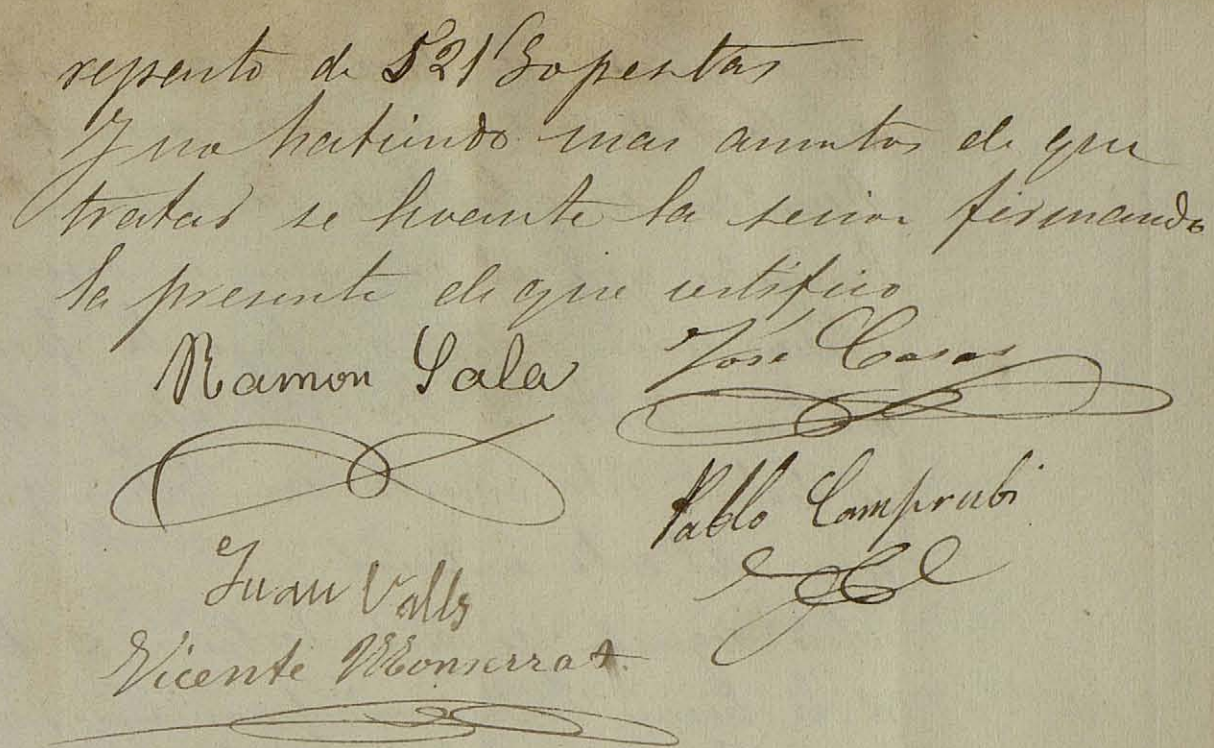 reparto de 521'50 pesetas
Y no habiendo mas asuntos de que
tratar se levante la sesion firmando
la presente de que certifico
Ramon Sala José Casas
Pablo Camprubi
Juan Valls
Vicente Monserrat.